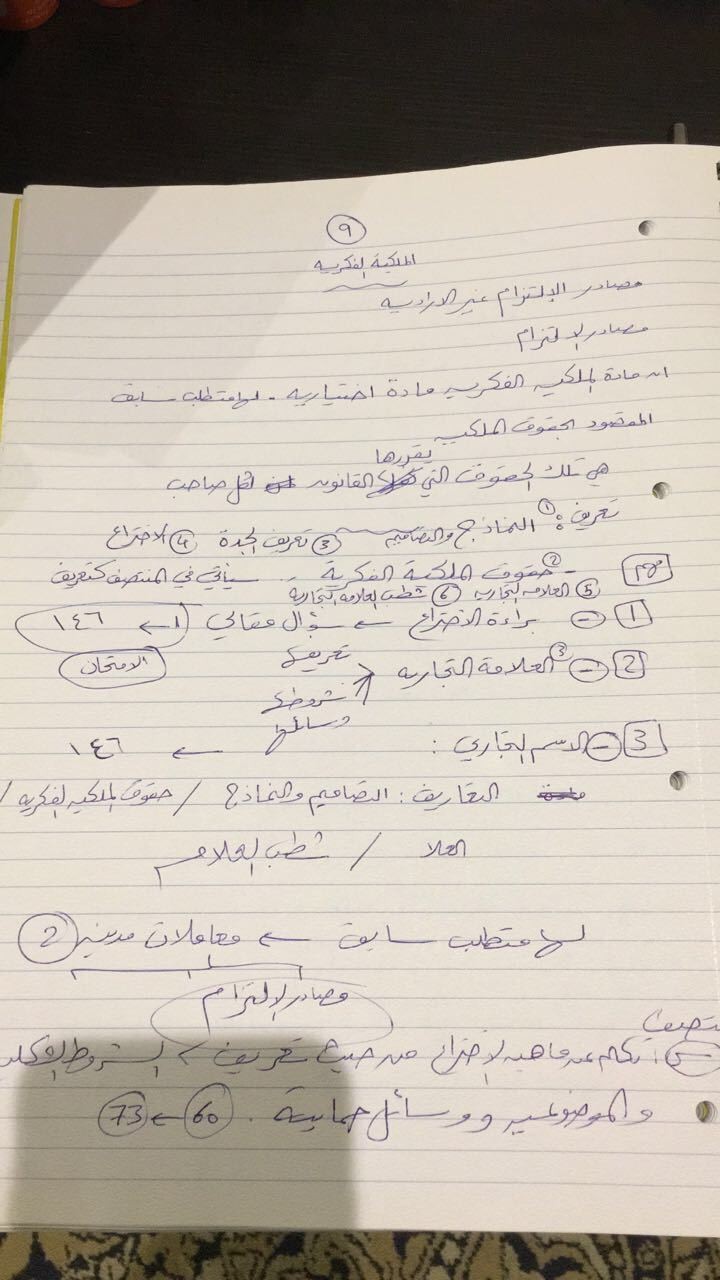 ٩
الملكية الفكريه
مصادر الالتزام غير الاراديه
مصادر الالتزام
ان مادة الملكيه الفكريه مادة اختياريه - لها متطلب سابق
المقصود بحقوق الملكيه
يقررها
هي تلك الحقوق التي القانون لكل صاحب
تعريف: ① النماذج والتصاميم ③ تعريف الجدة ④ الاختراع
مهم - حقوق الملكية الفكرية ② - سيأتي في المنتصف كتعريف
⑤ العلامه التجاريه ⑥ شطب العلامه التجاريه
1 - براءة الاختراع ← سؤال مقالي ١ ← ١٤٦
2 - العلامة التجاريه ③ تعريفها الامتحان
شروطها
وسائلها
3 - الاسم التجاري: ← ١٤٦
التعاريف: التصاميم والنماذج / حقوق الملكيه الفكريه /
العلا / شطب العلام
لها متطلب سابق ← معاملات مدنيه 2
مصادر الالتزام
س: تكلم عن ماهية الاختراع من حيث تعريف > الشروط الشكليه
والموضوعيه ووسائل حمايته. 60 ← 73